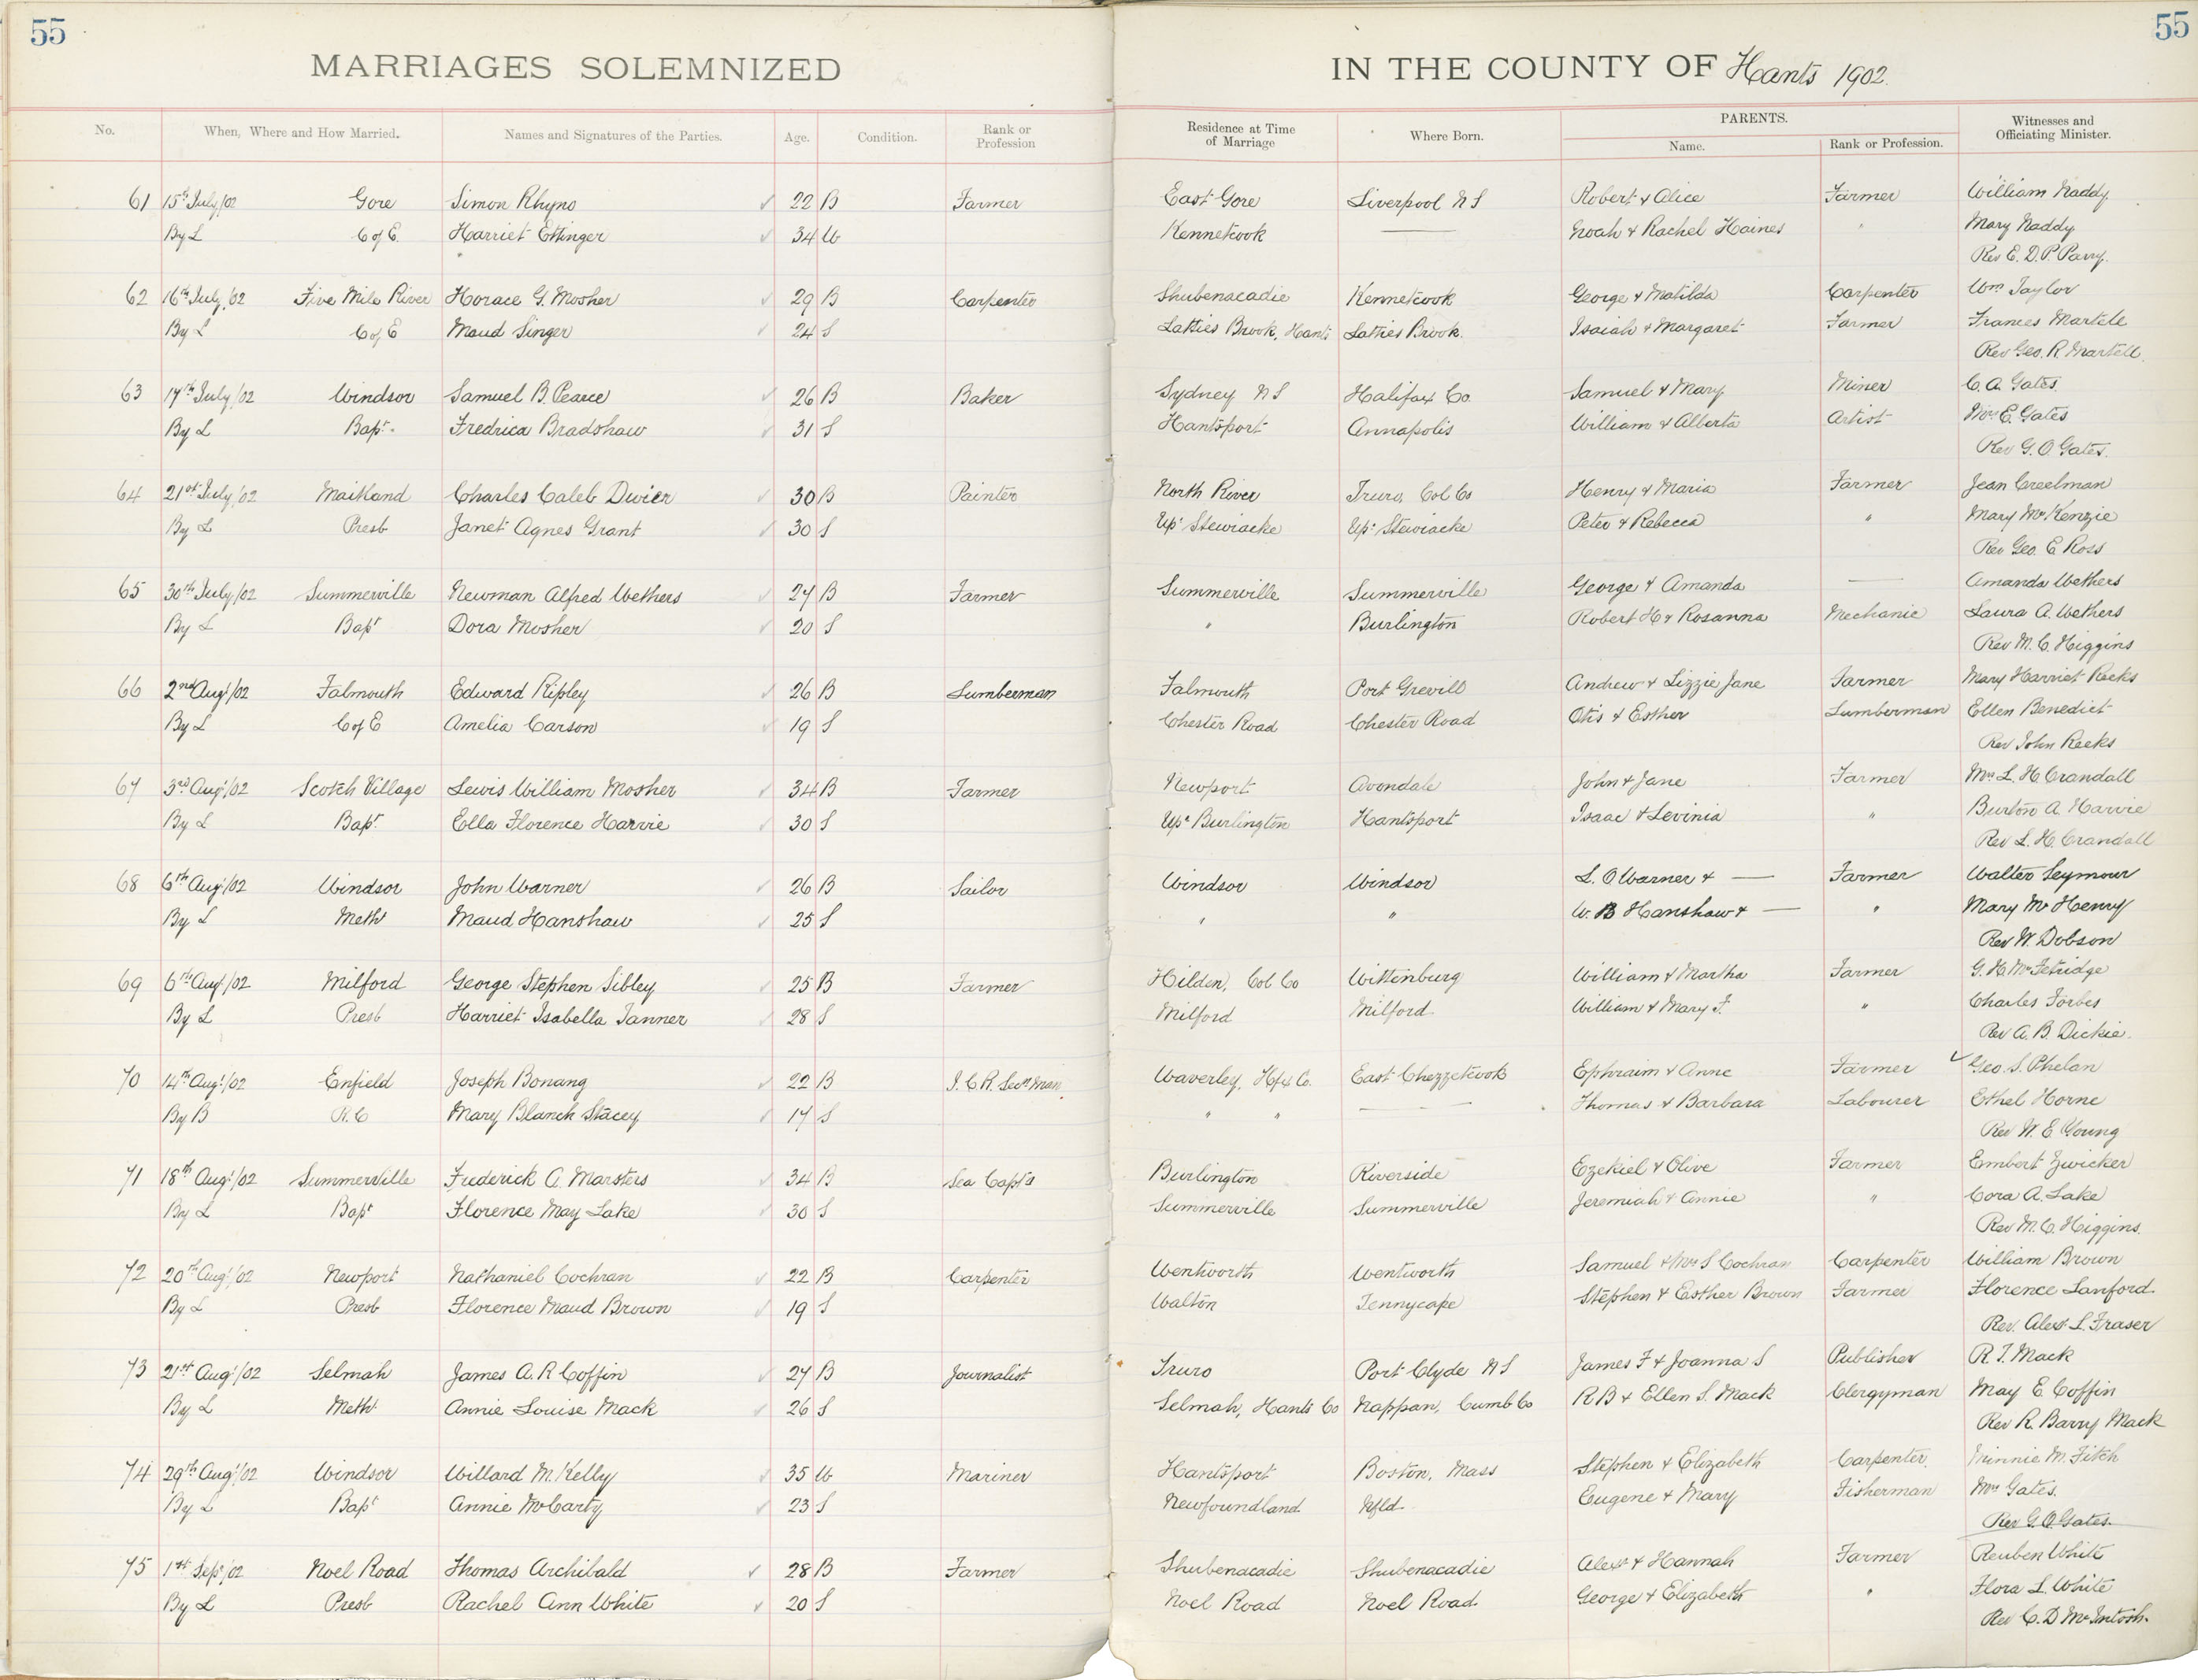 55 55
MARRIAGES SOLEMNIZED IN THE COUNTY OF Hants 1902.
No. When, Where and How Married. Names and Signatures of the Parties. Age. Condition. Rank or Profession Residence at Time of Marriage Where Born. PARENTS. Name. Rank or Profession. Witnesses and Officiating Minister.
61 15th July/02 Gore Simon Rhyno 22 B Farmer East Gore Liverpool N S Robert & Alice Farmer William Naddy
By L C of E. Harriet Ettinger 34 W Kennetcook — Noah & Rachel Haines " Mary Naddy
Rev E. D. P. Parry.
62 16th July/02 Five Mile River Horace G. Mosher 29 B Carpenter Shubenacadie Kennetcook George & Matilda Carpenter Wm Taylor
By L C of E Maud Singer 24 S Latties Brook, Hants Latties Brook. Isaiah & Margaret Farmer Frances Martele
Rev Geo. R. Martell.
63 17th July/02 Windsor Samuel B. Pearce 26 B Baker Sydney N S Halifax Co. Samuel & Mary Miner C. A. Gates
By L Bapt. Fredrica Bradshaw 31 S Hantsport Annapolis William & Alberta Artist Mrs E. Gates
Rev G. O. Gates.
64 21st July/02 Maitland Charles Caleb Dwier 30 B Painter North River Truro, Col Co Henry & Maria Farmer Jean Creelman
By L Presb Janet Agnes Grant 30 S Upr Stewiacke Upr Stewiacke Peter & Rebecca " Mary McKenzie
Rev Geo. E Ross
65 30th July/02 Summerville Newman Alfred Wethers 27 B Farmer Summerville Summerville George & Amanda — Amanda Wethers
By L Bapt Dora Mosher 20 S " Burlington Robert H & Rosanna Mechanic Laura A. Wethers
Rev M. C. Higgins
66 2nd Augt/02 Falmouth Edward Ripley 26 B Lumberman Falmouth Port Grevill Andrew & Lizzie Jane Farmer Mary Harriet Reeks
By L C of E Amelia Carson 19 S Chester Road Chester Road Otis & Esther Lumberman Ellen Benedict
Rev John Reeks
67 3rd Augt/02 Scotch Village Lewis William Mosher 34 B Farmer Newport Avondale John & Jane Farmer Mrs L. H. Crandall
By L Bapt. Ella Florence Harvie 30 S Upr Burlington Hantsport Isaac & Levinia " Burton A. Harvie
Rev L. H. Crandall
68 6th Augt/02 Windsor John Warner 26 B Sailor Windsor Windsor L. O Warner & — Farmer Walter Seymour
By L Meth Maud Hanshaw 25 S " " W. B Hanshaw & — " Mary McHenry
Rev W. Dobson
69 6th Augt/02 Milford George Stephen Sibley 25 B Farmer Hilden, Col Co Wittenburg William & Martha Farmer G. H. McFetridge
By L Presb Harriet Isabella Tanner 28 S Milford Milford William & Mary F. " Charles Forbes
Rev A. B. Dickie.
70 14th Augt/02 Enfield Joseph Bonang 22 B I. C. R. Secn Man. Waverley, Hfx Co. East Chezzetcook Ephraim & Anne Farmer Geo. S. Phelan
By B R. C Mary Blanch Stacey 17 S " " — Thomas & Barbara Labourer Ethel Horne
Rev W. E Young
71 18th Augt/02 Summerville Frederick A. Marsters 34 B Sea Captn Burlington Riverside Ezekiel & Olive Farmer Embert Zwicker
By L Bapt Florence May Lake 30 S Summerville Summerville Jeremiah & Annie " Cora A. Lake
Rev M. C. Higgins.
72 20th Augt/02 Newport Nathaniel Cochran 22 B Carpenter Wentworth Wentworth Samuel & Mrs S Cochran Carpenter William Brown
By L Presb Florence Maud Brown 19 S Walton Tennycape Stephen & Esther Brown Farmer Florence Sanford.
Rev. Alex. L. Fraser
73 21st Augt/02 Selmah James A. R Coffin 27 B Journalist Truro Port Clyde N S James F & Joanna S Publisher R. T. Mack
By L Meth Annie Louise Mack 26 S Selmah, Hants Co Nappan, Cumb Co R B & Ellen S. Mack Clergyman May E. Coffin
Rev R. Barry Mack
74 29th Augt/02 Windsor Willard M. Kelly 35 W Mariner Hantsport Boston, Mass Stephen & Elizabeth Carpenter. Minnie M. Fitch
By L Bapt Annie McCarty 23 S Newfoundland Nfld. Eugene & Mary Fisherman Mrs Gates.
Rev G. O. Gates.
75 1st Sept/02 Noel Road Thomas Archibald 28 B Farmer Shubenacadie Shubenacadie Alexr & Hannah Farmer Reuben White
By L Presb Rachel Ann White 20 S Noel Road Noel Road. George & Elizabeth " Flora L. White
Rev C. D McIntosh.